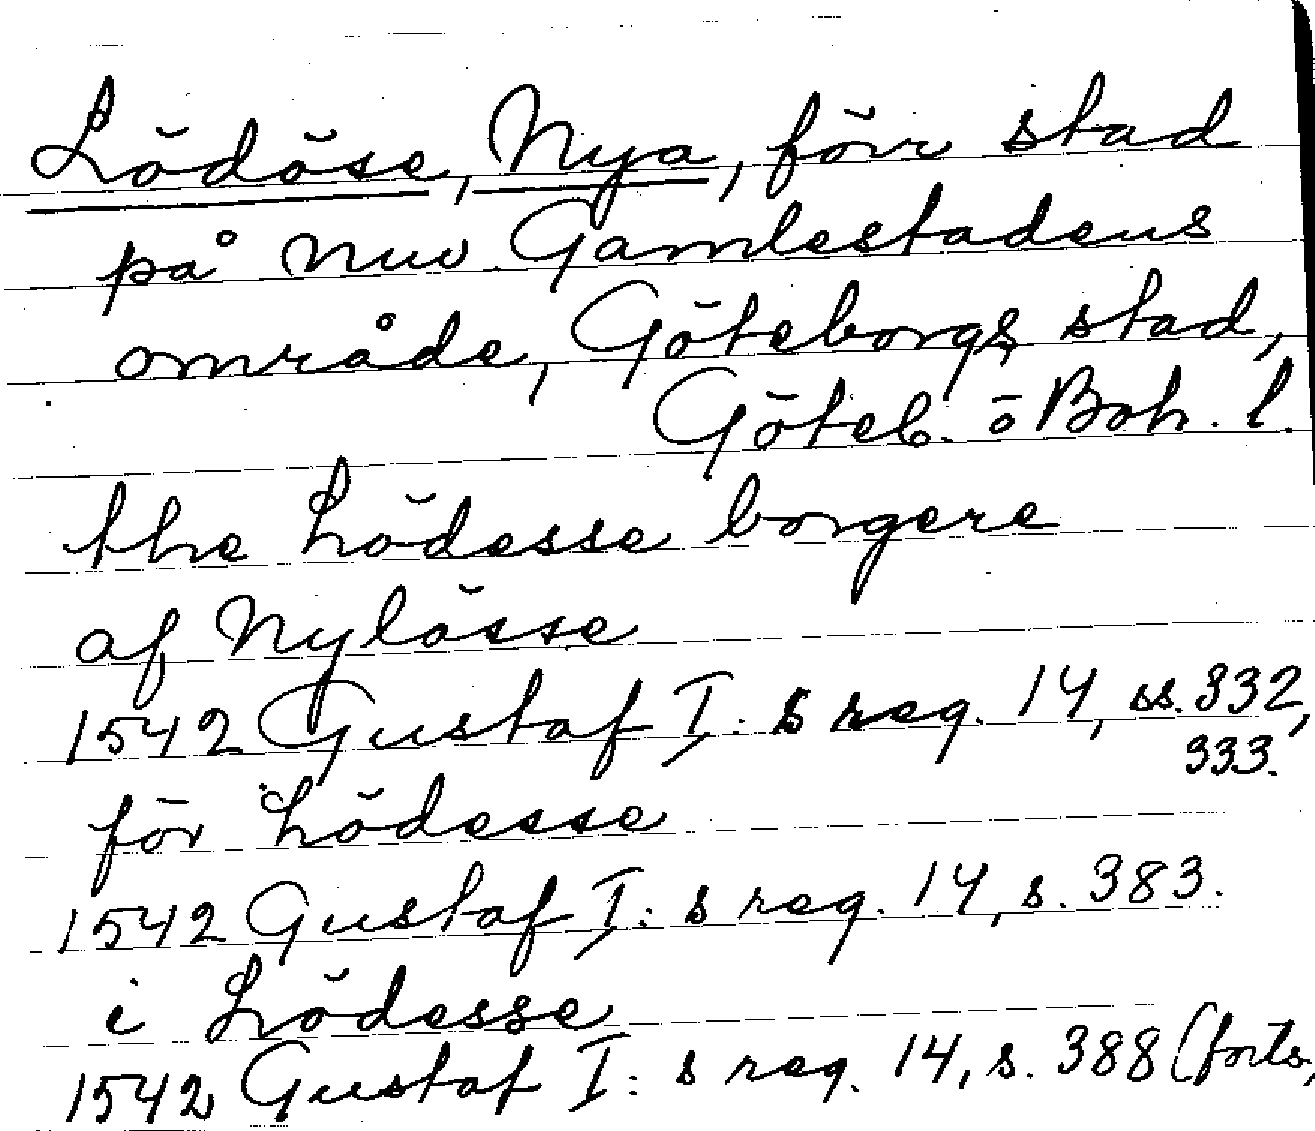 Lödöse, Nya, förr stad
på nuv. Gamlestadens
område, Göteborgs stad,
Göteb. o Boh. l.
the Lödesse borgere
af Nylösse
1542 Gustaf I: s reg. 14, ss. 332,
333.
för Lödesse
1542 Gustaf I: s reg. 14, s. 383.
i Lödesse
1542 Gustaf I: s reg. 14, s. 388 (forts.